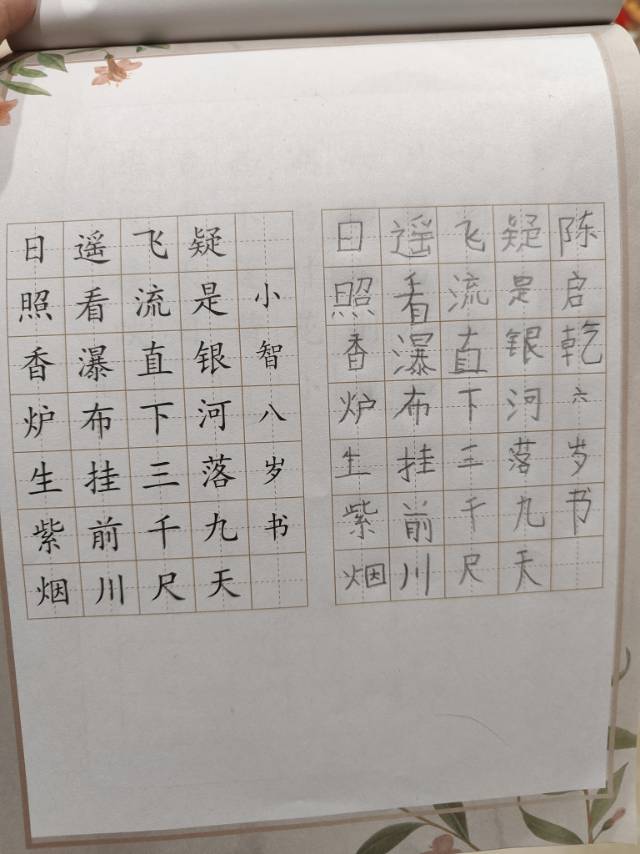 日照香炉生紫烟
遥看瀑布挂前川
飞流直下三千尺
疑是银河落九天
小智八岁书
日照香炉生紫烟
遥看瀑布挂前川
飞流直下三千尺
疑是银河落九天
陈启乾六岁书